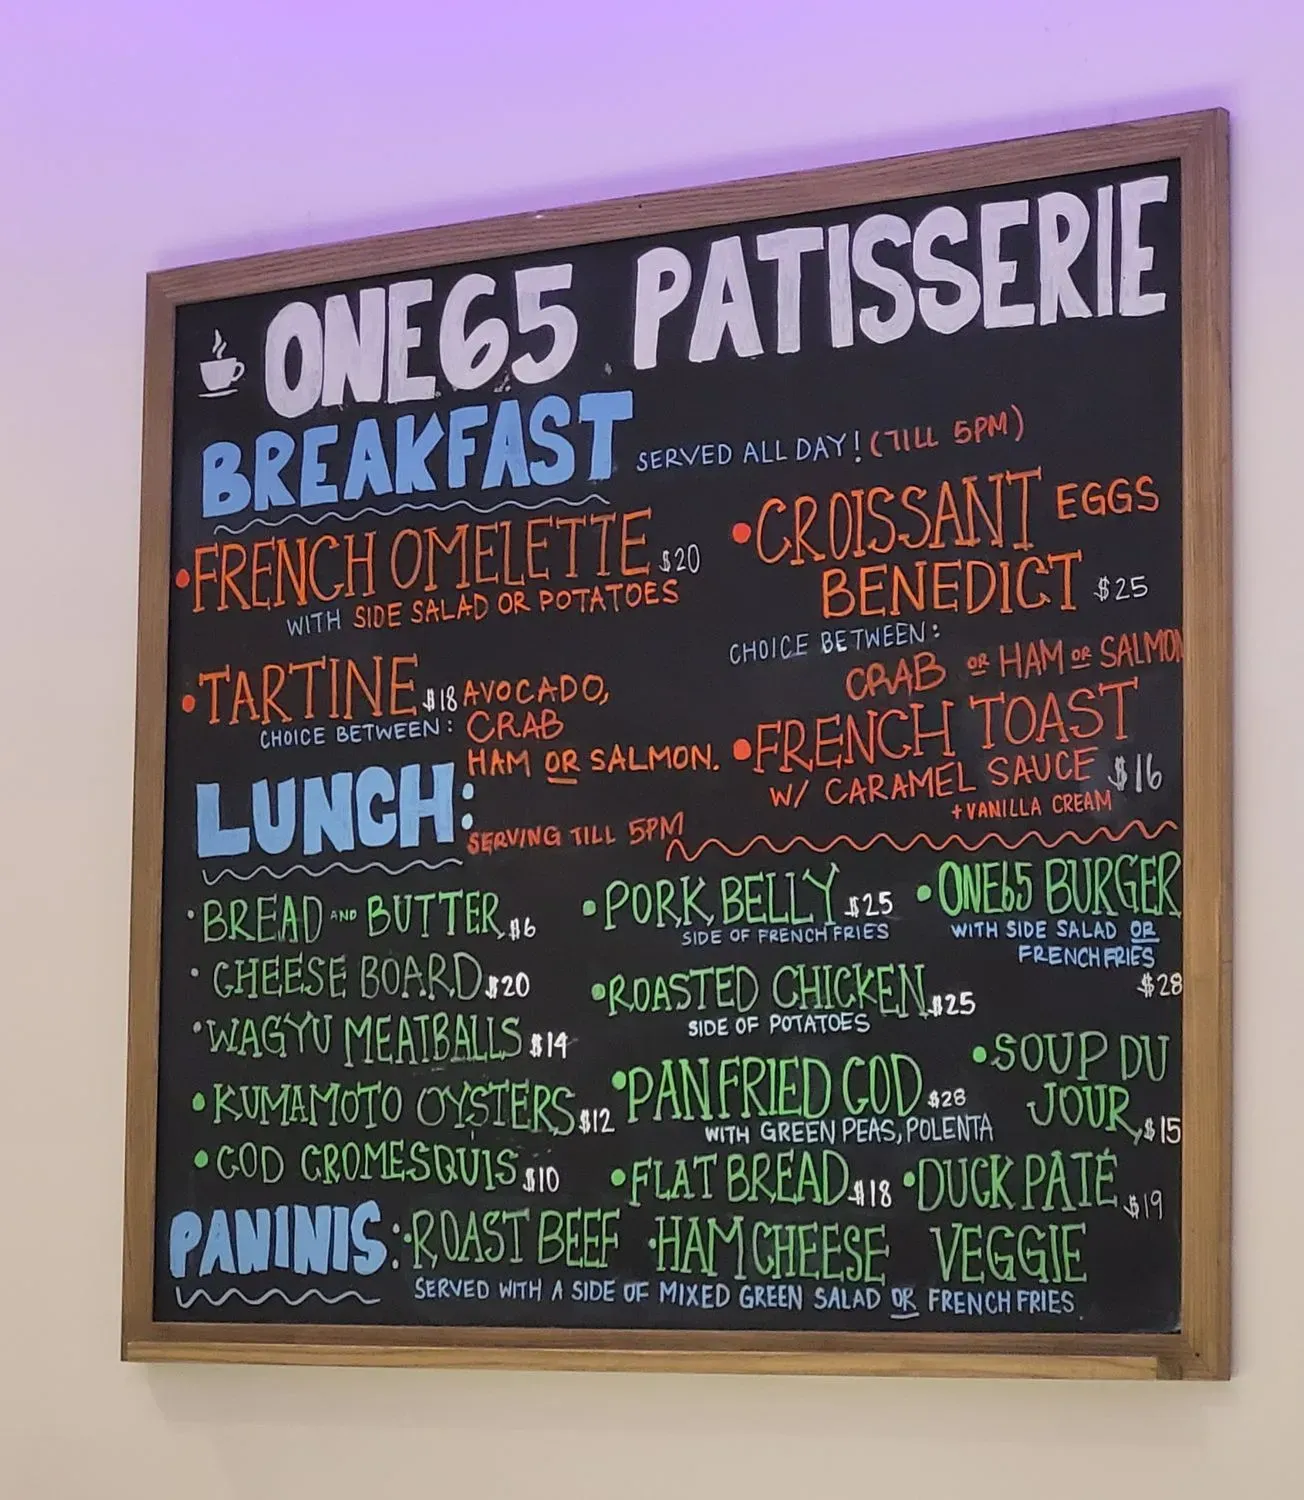 ONE65 PATISSERIE
BREAKFAST SERVED ALL DAY! (TILL 5PM)
•FRENCH OMELETTE $20
WITH SIDE SALAD OR POTATOES
•TARTINE $18 AVOCADO,
CHOICE BETWEEN: CRAB
HAM OR SALMON.
•CROISSANT EGGS
BENEDICT $25
CHOICE BETWEEN:
CRAB OR HAM OR SALMON
•FRENCH TOAST
W/ CARAMEL SAUCE $16
+VANILLA CREAM
LUNCH:
SERVING TILL 5PM
•BREAD AND BUTTER $6
•CHEESE BOARD $20
•WAGYU MEATBALLS $14
•KUMAMOTO OYSTERS $12
•COD CROMESQUIS $10
•PORK BELLY $25
SIDE OF FRENCH FRIES
•ROASTED CHICKEN $25
SIDE OF POTATOES
•PAN FRIED COD $28
WITH GREEN PEAS, POLENTA
•FLAT BREAD $18
•ONE65 BURGER
WITH SIDE SALAD OR
FRENCH FRIES
$28
•SOUP DU
JOUR $15
•DUCK PATÉ $19
PANINIS: •ROAST BEEF •HAM CHEESE VEGGIE
SERVED WITH A SIDE OF MIXED GREEN SALAD OR FRENCH FRIES